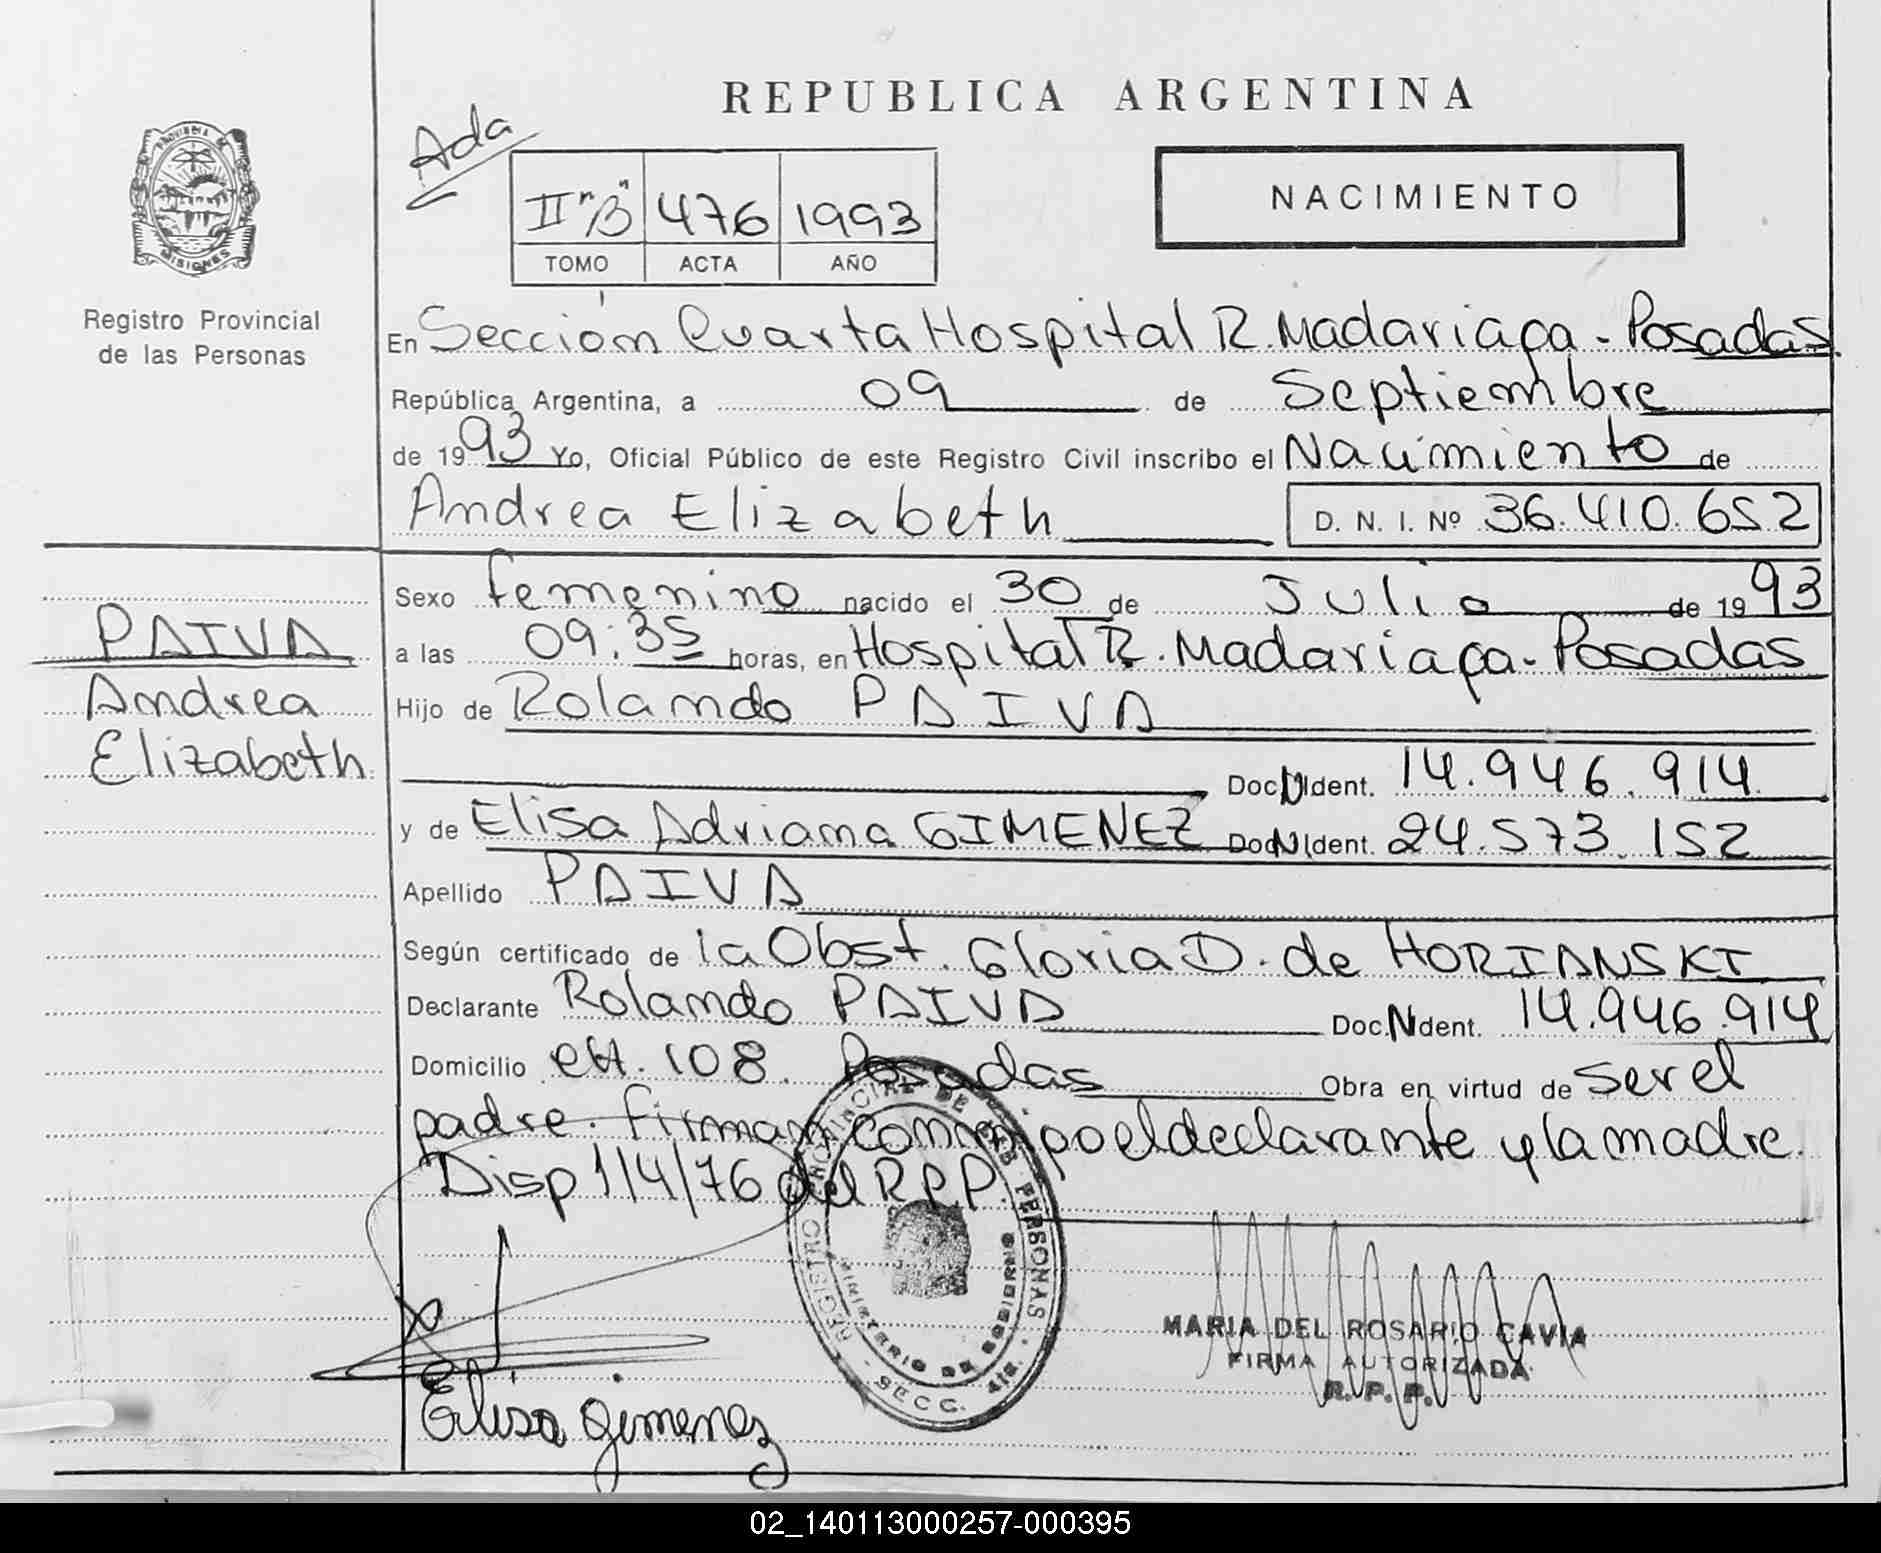 REPUBLICA ARGENTINA
Ada
II "B" 476 1993
TOMO ACTA AÑO
NACIMIENTO
PROVINCIA DE
MISIONES
Registro Provincial
de las Personas
En Sección Cuarta Hospital R. Madariaga - Posadas.
República Argentina, a 09 de Septiembre
de 1993 Yo, Oficial Público de este Registro Civil inscribo el Nacimiento de
Andrea Elizabeth D. N. I. Nº 36.410.652
Sexo femenino nacido el 30 de Julio de 1993
a las 09:35 horas, en Hospital R. Madariaga - Posadas
Hijo de Rolando PAIVA
Doc. N Ident. 14.946.914
y de Elisa Adriana GIMENEZ Doc N Ident. 24.573.152
Apellido PAIVA
PAIVA
Andrea
Elizabeth
Según certificado de la Obst. Gloria D. de HORIANSKI
Declarante Rolando PAIVA Doc. N dent. 14.946.914
Domicilio CH. 108. Posadas Obra en virtud de ser el
padre. Firman conmigo el declarante y la madre.
Disp 114/76 del R.P.P.
REGISTRO PROVINCIAL DE LAS PERSONAS
MINISTERIO DE GOBIERNO
SECC. 4ta.
MARIA DEL ROSARIO CAVIA
FIRMA AUTORIZADA
R. P. P.
Elisa Gimenez
02_140113000257-000395